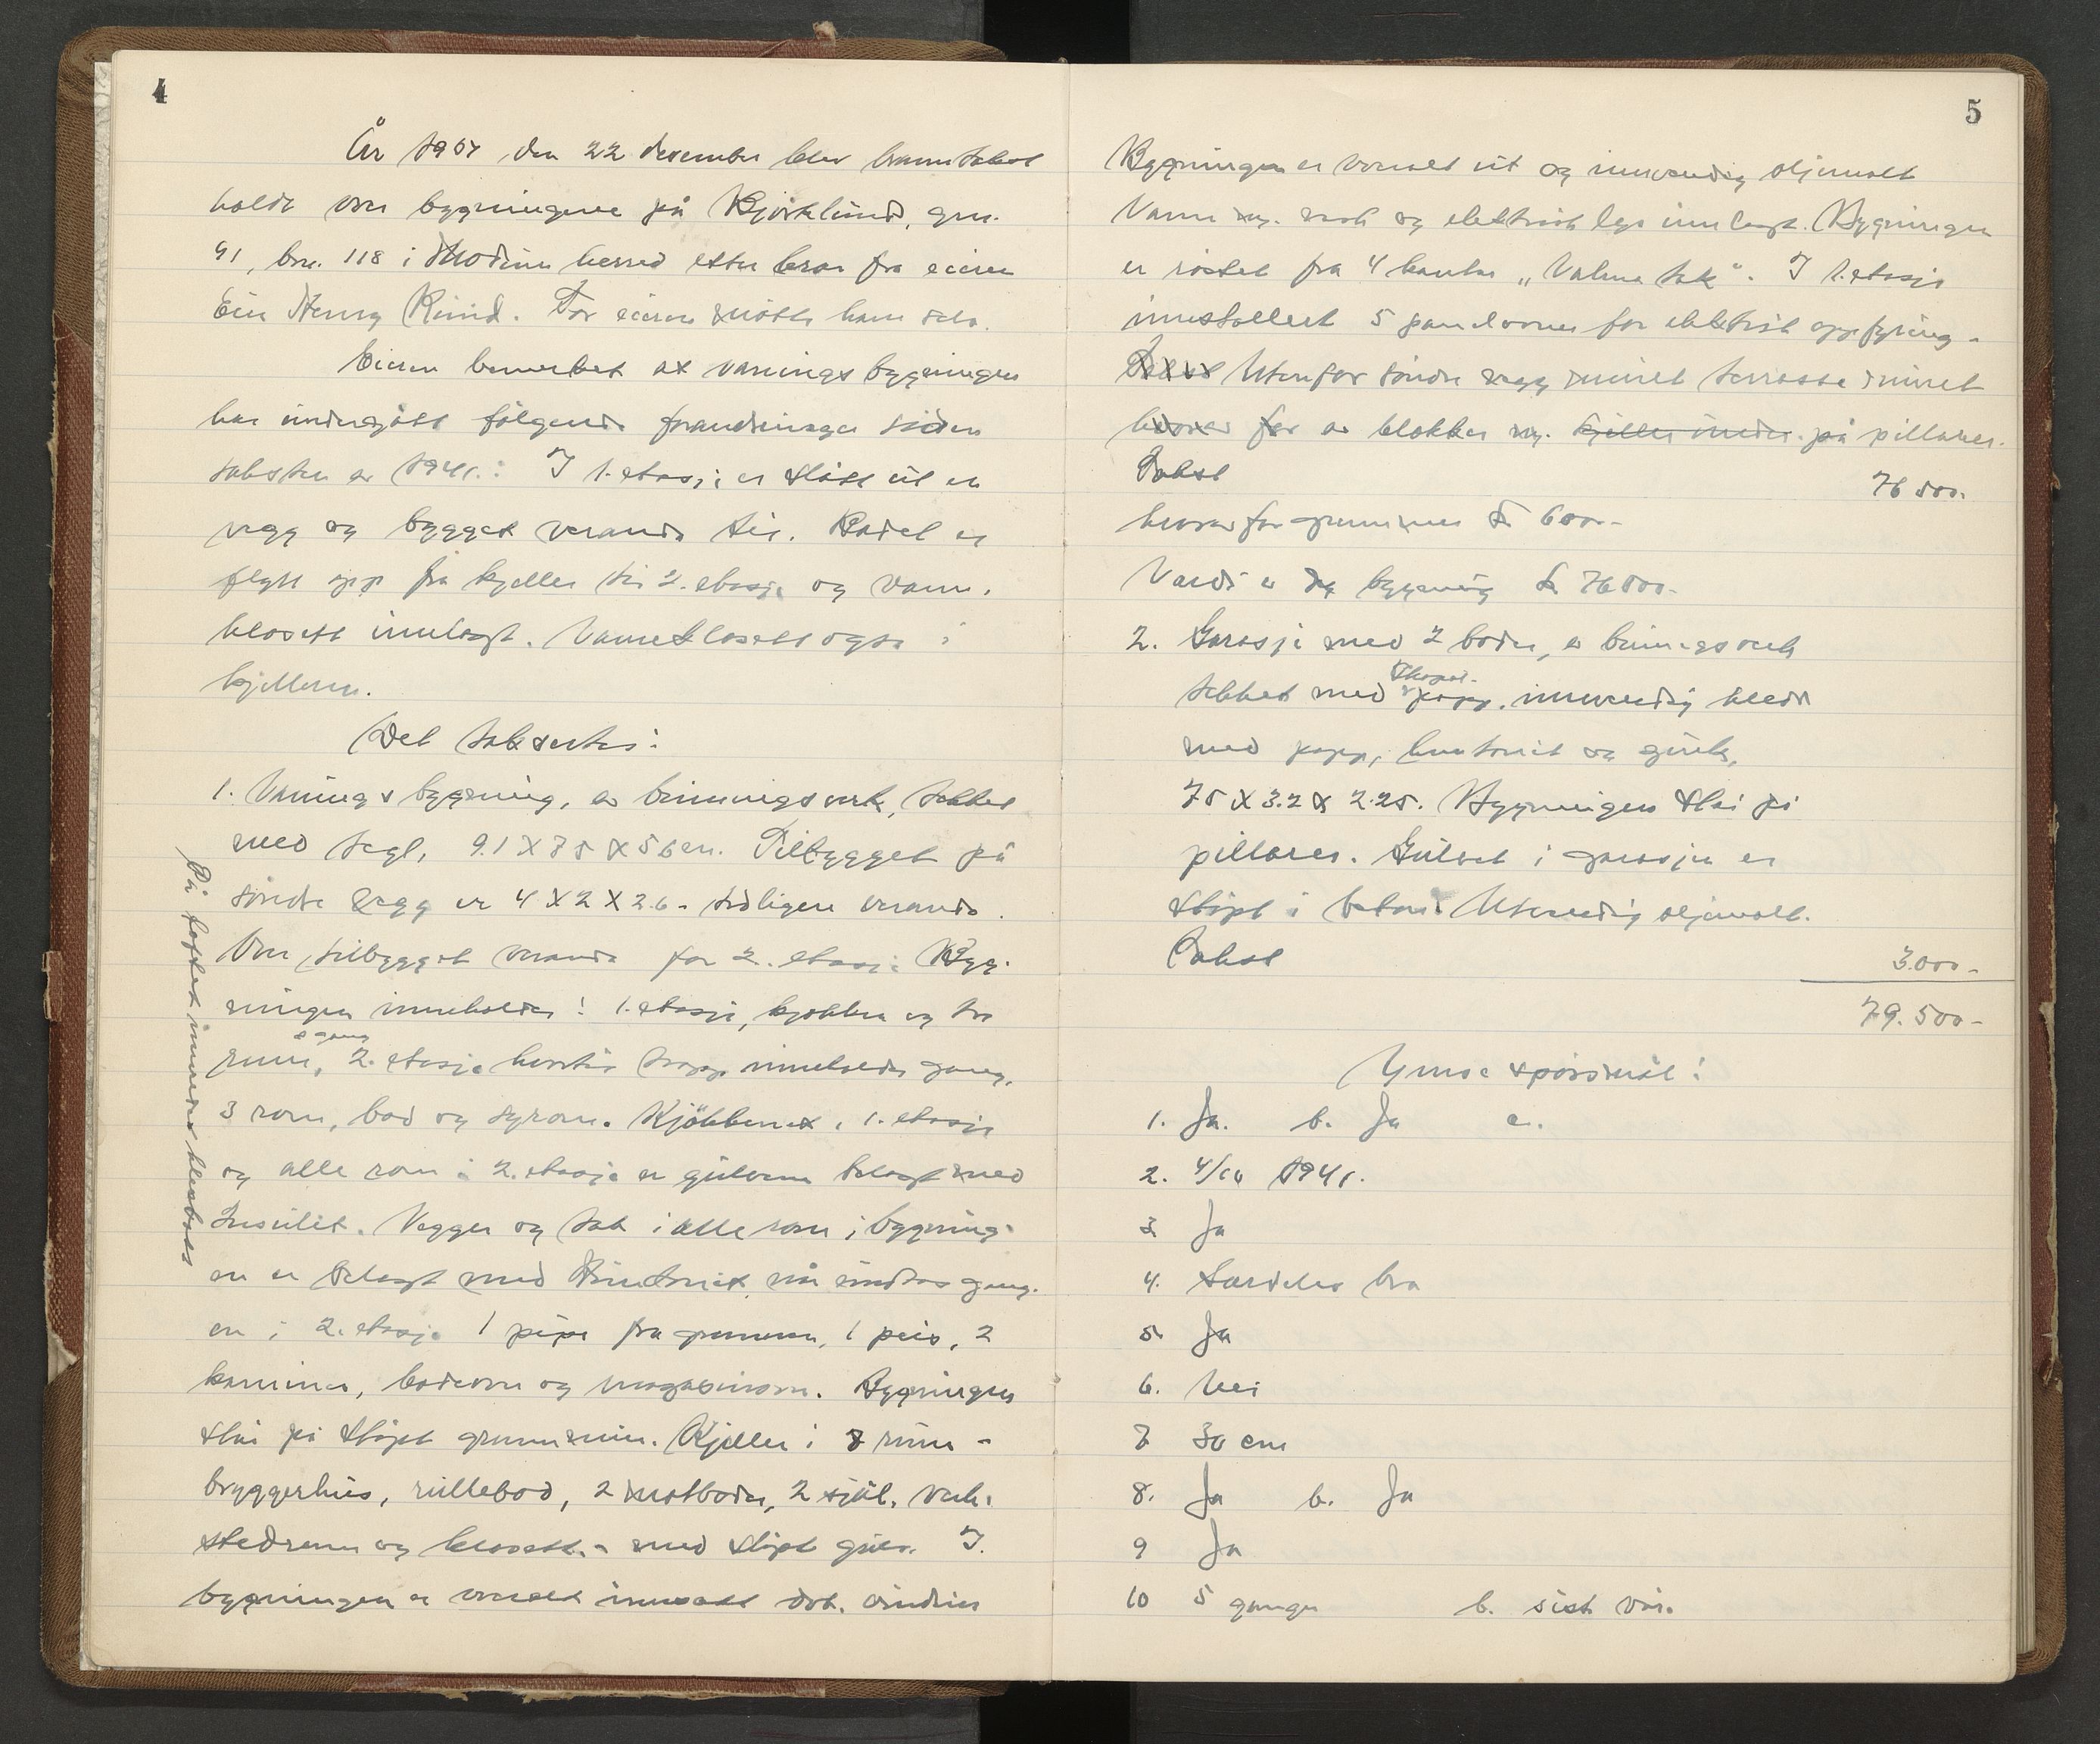 4
År 1951 den 22 desember blev branntakst
holdt over bygningene på Björklund, gnr.
91, bnr. 118 i Modum herred etter krav fra eieren
Henry Ruud. For eieren møtte han selv.
Eieren bemerket at vånings bygningen
har undergått følgende forandringer siden
taksten av 1941: I 1. etasje er slått ut en
vegg og bygget veranda til. Badet er
flytt opp fra kjeller til 2. etasje og vann.
klosett innlagt. Vannklosett også i
kjelleren.
Det takseres:
1. Vånings bygning, av binningsverk, tekket
med tegl, 9.1 X 7.5 X 5.6 m. Tilbygget på
søndre vegg er 4 X 2 X 2.6 - tidligere veranda.
Over tilbygget veranda for 2. etasje Byg-
ningen inneholder: 1. etasje, kjøkken og tre
rum, & gang 2. etasje hvortil trapp inneholder gang,
3 rom, bad og syrom. Kjökkenet i 1. etasje
og alle rom i 2. etasje er gulvene belagt med
Insulit. Vegger og tak i alle rom i bygning-
en er belagt med Huntonit, når undtas gang-
en i 2. etasje 1 pipe fra grunnen, 1 peis, 2
kaminer, badeovn og magasinovn. Bygningen
står på støpt grunnmur. Kjeller i 8 rum -
bryggerhus, rullebod, 2 matboder, 2 kjøl. verk-
stedrum og klosett - med støpt gulv. I
bygningen er overalt innsatt dob. vinduer
På loftet innredet klesbod
5
Bygningen er vannlt ut og innvendig oljemalt
Vann og vask og elektrisk lys innlagt. Bygningen
er röstet fra 4 kanter "Valme tak". I 1. etasje
innstallert 5 panelovner for elektrisk oppfyring -
Takst Utenfor söndre vegg muret terrasse muret
hvorav for av blokker og kjeller under. på pillarer.
Takst 76 500.
hvorav for grunnmur kr 600.-
Verdi av ny bygning kr 76500.-
2. Garasje med 2 boder, av binningsverk
tekket med papp. innvendig kledt
med papp, huntonit og gips,
7.5 X 3.2 X 2.25. Bygningen står på
pillarer. Gulvet i garasjen er
støpt i betong. Utvendig oljemalt.
Takst 3.000 -
79.500 -
Ymse spörsmål:
1. Ja. b. Ja c.
2. 4/10 1941.
3. Ja
4. Særdeles bra
5. Ja
6. Nei
7 30 cm
8. Ja b. Ja
9 Ja
10 5 ganger b. sist vår.